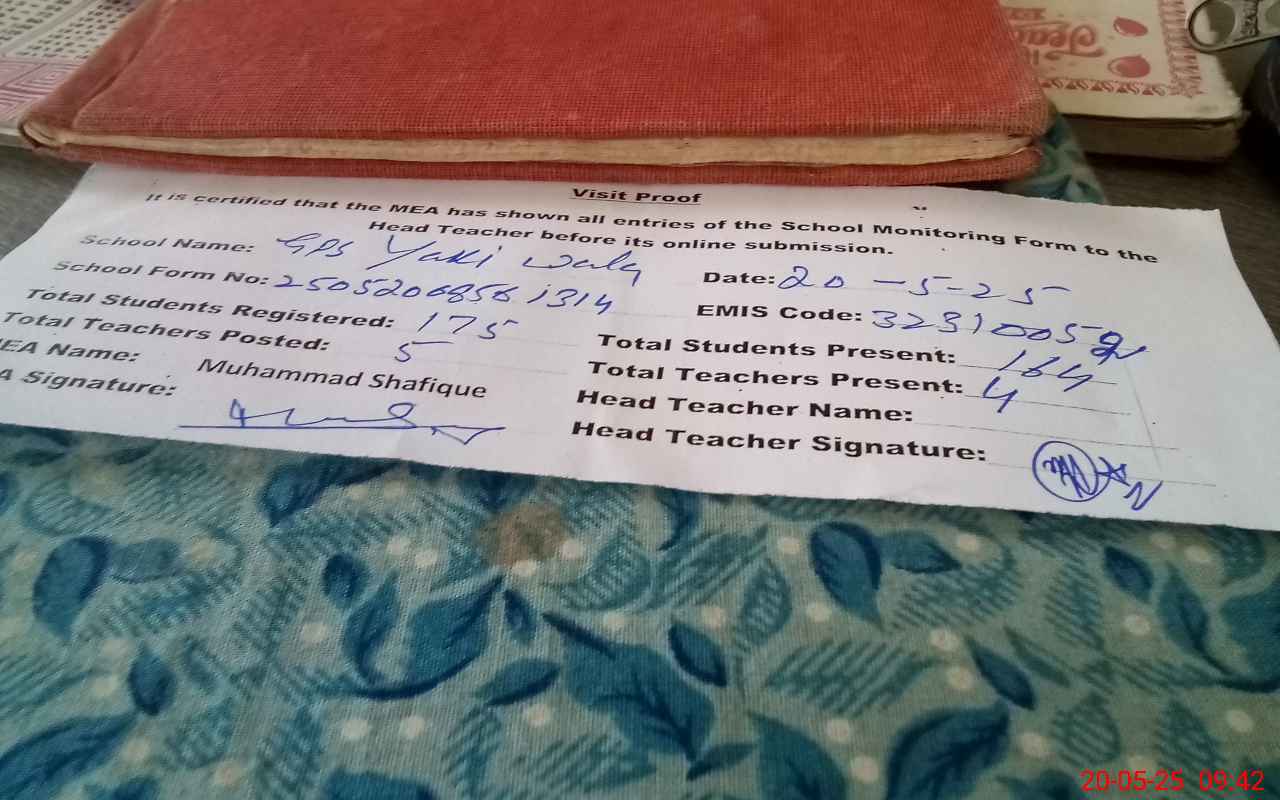 Visit Proof
It is certified that the MEA has shown all entries of the School Monitoring Form to the
Head Teacher before its online submission.
School Name: GPS Yaki wala
Date: 20-5-25
School Form No: 2505206856 1314
EMIS Code: 32310052
Total Students Registered: 175
Total Students Present: 164
Total Teachers Posted: 5
Total Teachers Present: 4
MEA Name: Muhammad Shafique
Head Teacher Name:
A Signature:
Head Teacher Signature:
20-05-25 09:42